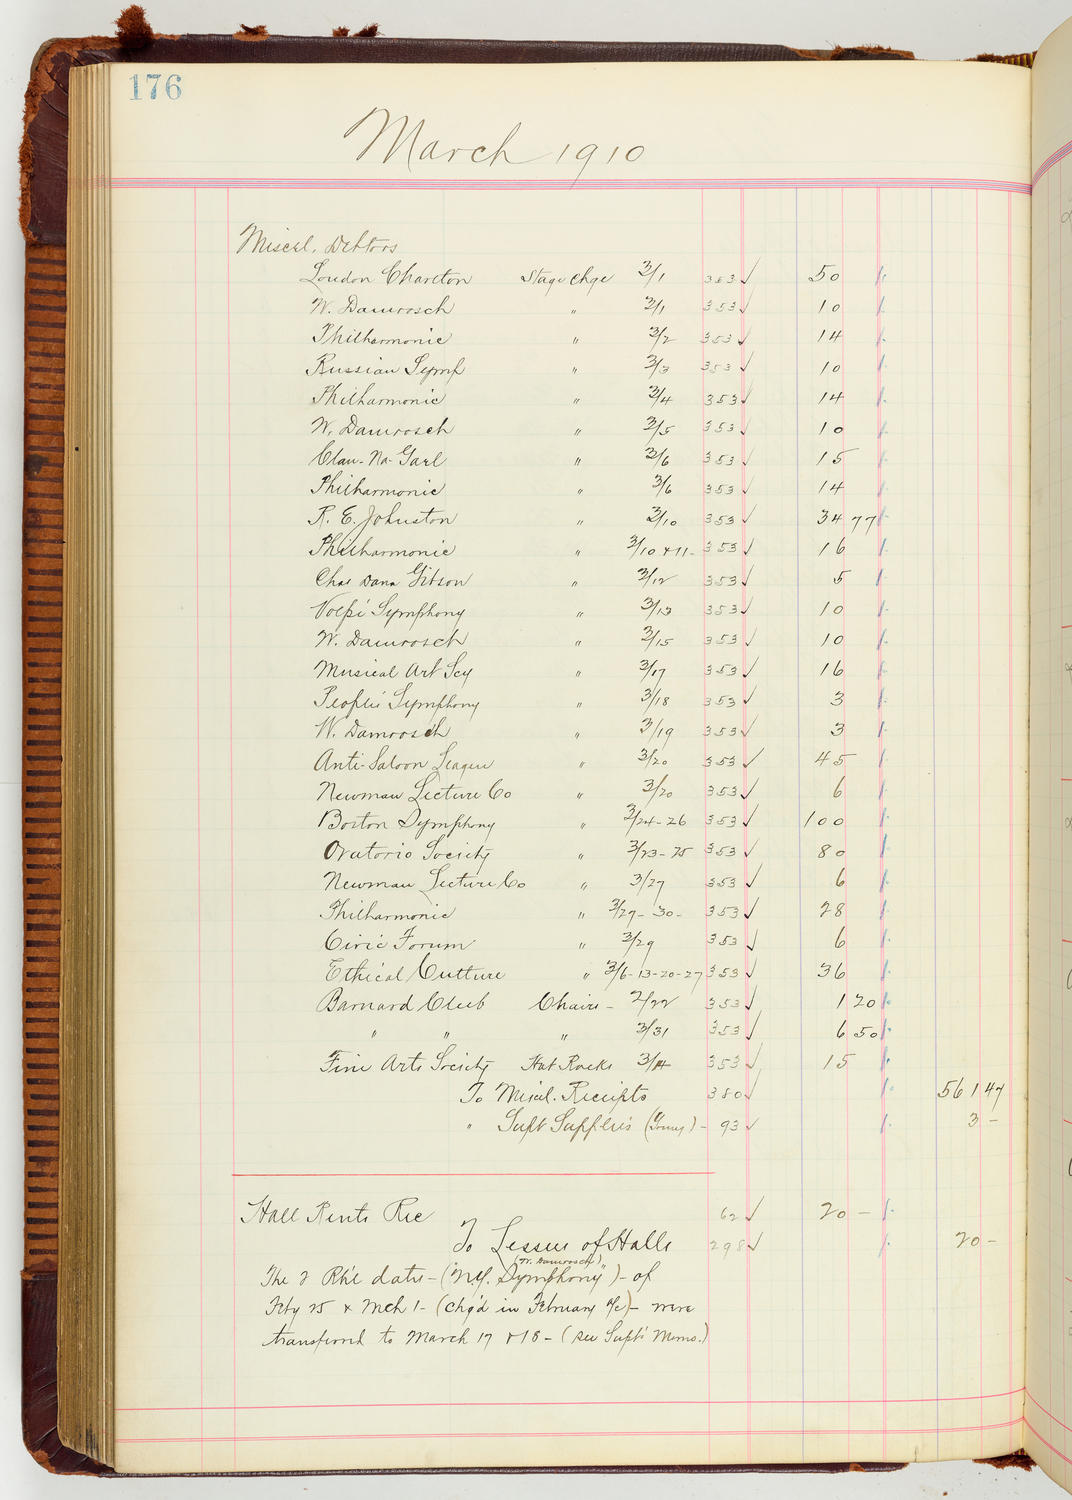 176
March 1910
Miscel. Debtors
Loudon Charlton Stage Chge 3/1 353 ✓ 50
W. Damrosch " 3/1 353 ✓ 10
Philharmonic " 3/2 353 ✓ 14
Russian Symp " 3/3 353 ✓ 10
Philharmonic " 3/4 353 ✓ 14
W. Damrosch " 3/5 353 ✓ 10
Clan-Na-Gael " 3/6 353 ✓ 15
Philharmonic " 3/6 353 ✓ 14
R. E. Johnston " 3/10 353 ✓ 34 77
Philharmonic " 3/10 & 11- 353 ✓ 16
Chas Dana Gibson " 3/12 353 ✓ 5
Volpe Symphony " 3/13 353 ✓ 10
W. Damrosch " 3/15 353 ✓ 10
Musical Art Scy " 3/17 353 ✓ 16
Peoples Symphony " 3/18 353 ✓ 3
W. Damrosch " 3/19 353 ✓ 3
Anti-Saloon League " 3/20 353 ✓ 45
Newman Lecture Co " 3/20 353 ✓ 6
Boston Symphony " 3/24-26 353 ✓ 100
Oratorio Society " 3/23-25 353 ✓ 80
Newman Lecture Co " 3/27 353 ✓ 6
Philharmonic " 3/27- 30- 353 ✓ 28
Civic Forum " 3/29 353 ✓ 6
Ethical Culture " 3/6-13-20-27 353 ✓ 36
Barnard Club Chairs - 2/22 353 ✓ 1 20
" " " 3/31 353 ✓ 6 50
Fine Arts Society Hat Racks 3/14 353 ✓ 15
To Miscl. Receipts 380 ✓ 561 47
" Supt Supplies ( ) - 93 ✓ 3 -
Hall Rents Rec 62 ✓ 20 -
To Lessees of Halls 298 ✓ 20 -
(W. Damrosch)
The 2 Rh'l dates - ("N.Y. Symphony") - of
Feby 25 & Mch 1 - (chg'd in February a/c) - were
transferred to March 17 & 18 - (see Supt's Memo.)